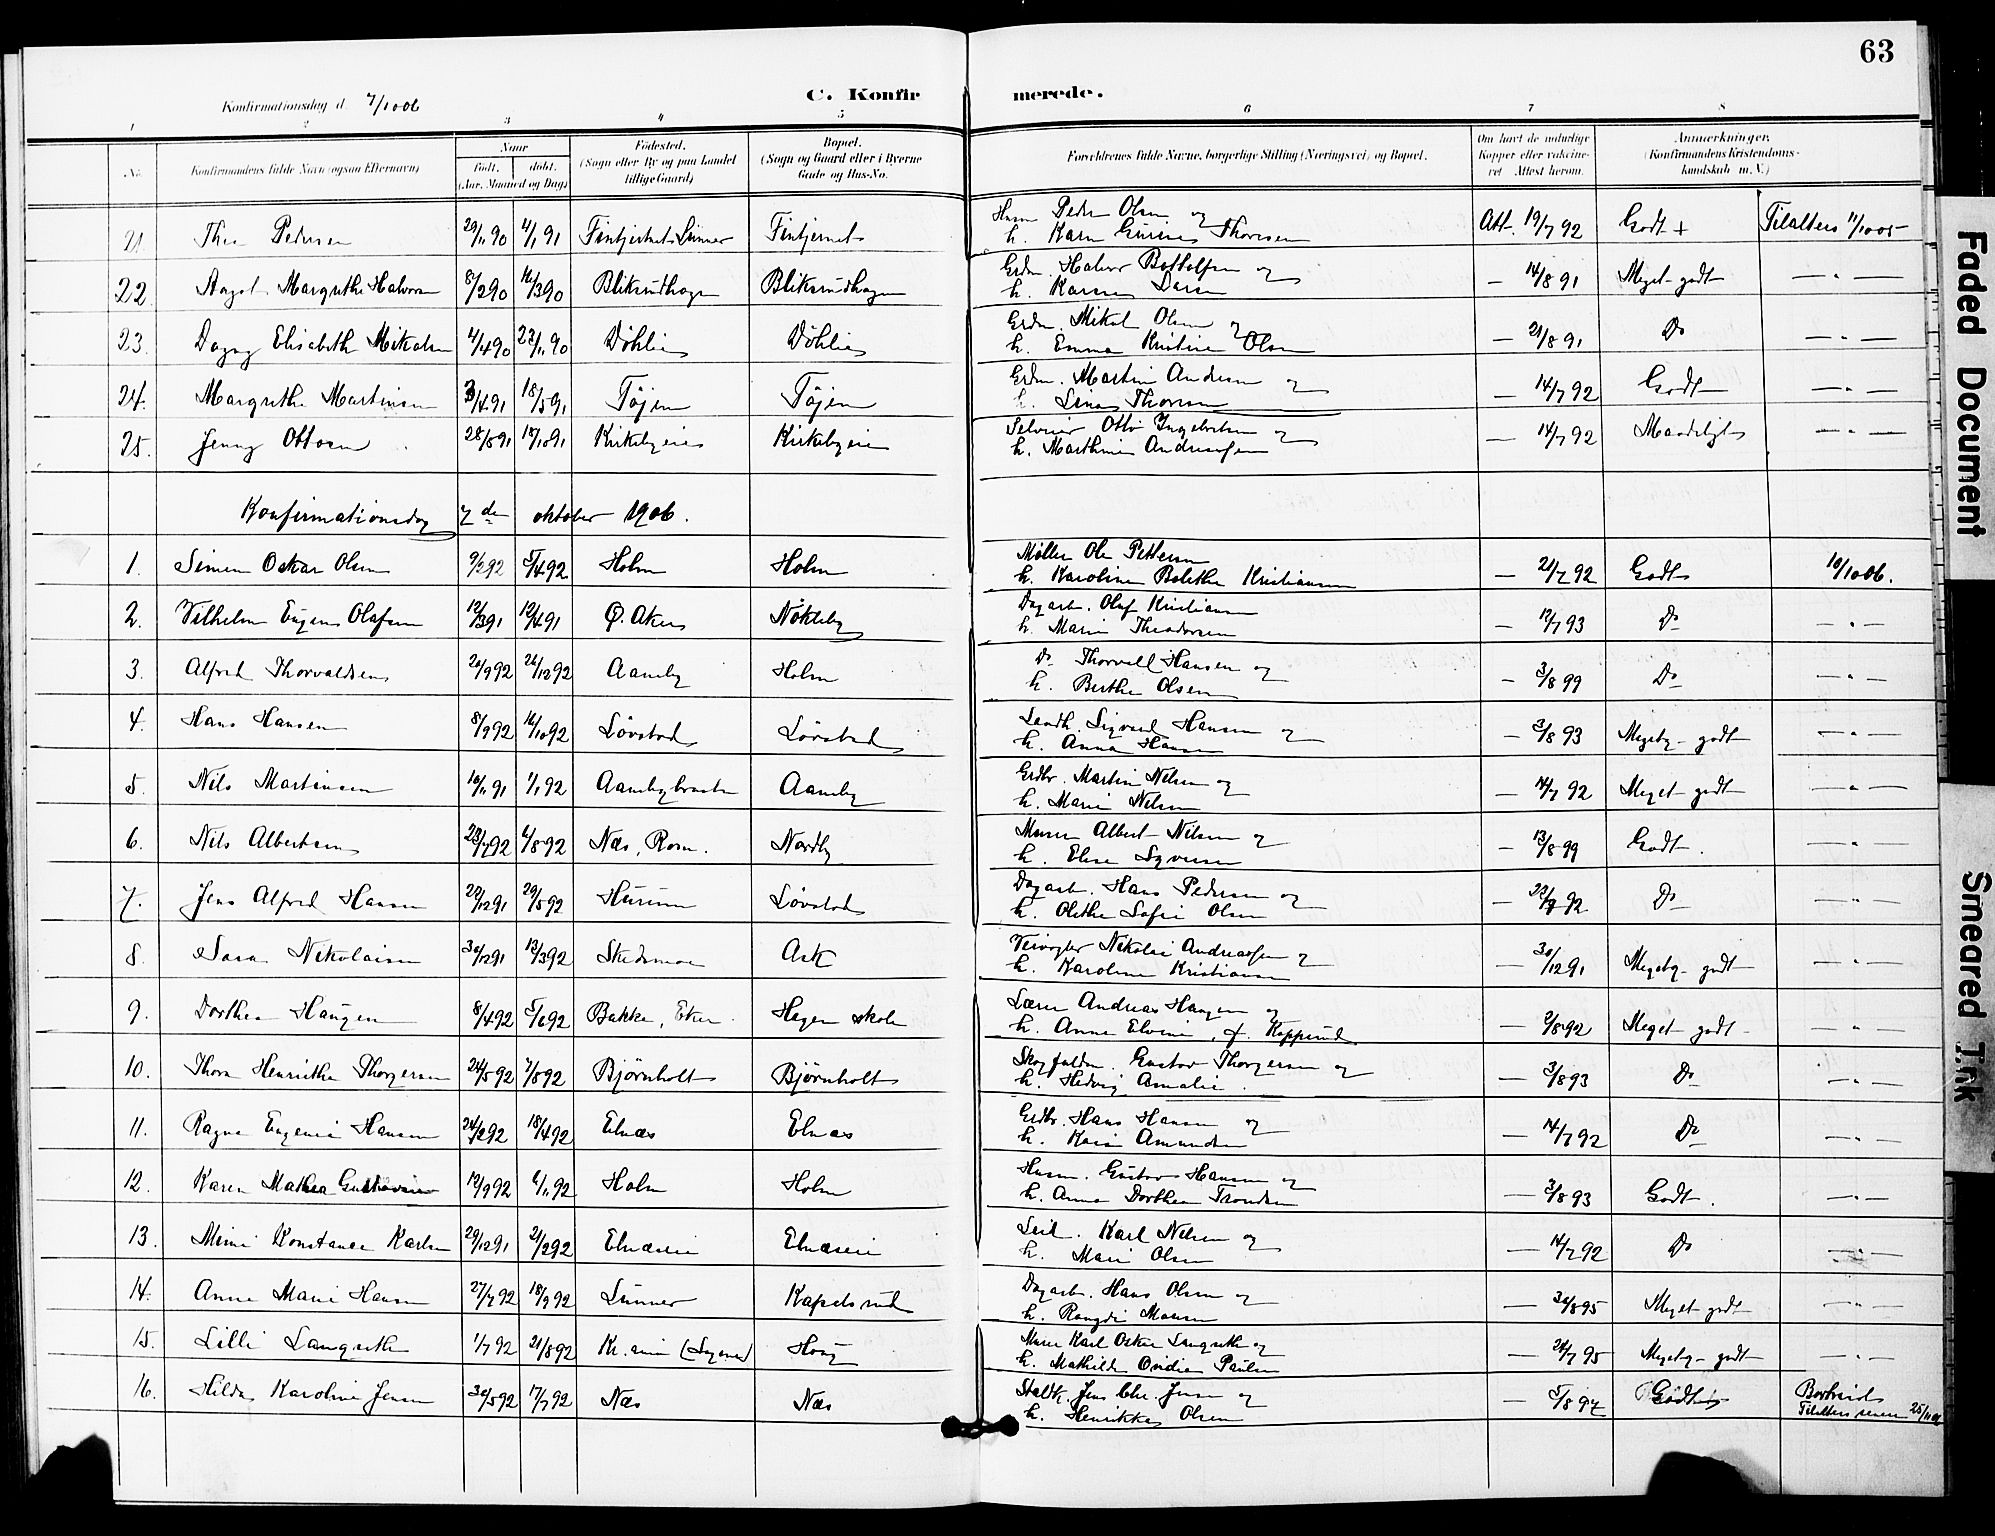 63
Konfirmationsdag d. 7/10 06
C. Konfirmerede.
1 2 3 4 5 6 7 8
No. Konfirmandens fulde Navn (ogsaa Efternavn) Naar født. døbt. (Aar, Maaned og Dag) Fødested. (Sogn eller By og paa Landet tillige Gaard) Bopæl. (Sogn og Gaard eller i Byerne Gade og Hus-No. Forældrenes fulde Navne, borgerlige Stilling (Næringsvei) og Bopæl. Om havt de naturlige Kopper eller vaccineret. Attest herom. Anmerkninger. (Konfirmandens Kristendomskundskab m. V.)
21. Thea Pedersen 29/11 90 4/1 91 Husm Peder Olsen og Att. 19/7 92 Godt + Tilalters 11/10 05
h. Karen Thoresen
22. Aagot Margrethe Halvorsen 8/2 90 16/3 90 Bliksrudhagen Bliksrudhagen Grdm. Halvor Bottolfsen og — 14/8 91 Meget godt — " —
h. Karen Larsen
23. Dagny Elisabeth Mikalsen 4/4 90 23/11 90 Døhlie Døhlie Grdm. Mikal Olsen og — 21/8 91 Do — " —
h. Emma Kristine Olsen
24. Margrethe Martinsen 3/4 91 18/5 91 Tøjen Tøjen Grdm. Martin Andersen og — 14/7 92 Godt — " —
h. Lina Thoresen
25. Jenny Ottosen 28/8 91 18/10 91 Kirkebyeie Kirkebyeie Selveier Otto Ingebretsen og — 14/7 92 Maadeligt — " —
h. Marthine Andreasen
Konfirmationsdag 7de oktober 1906.
1. Simen Oskar Olsen 9/2 92 5/4 92 Holm Holm Møller Ole Pettersen — 21/7 92 Godt 10/10 06.
h. Karoline Bolethe Kristiansen
2. Vilhelm Eugen Olafsen 12/3 91 12/4 91 Ø. Aker Nøkleby Dagarb. Oluf Kristiansen — 12/7 93 Do — " —
h. Marie Theodorsen
3. Alfred Thorvaldsen 20/9 92 26/12 92 Aamby Holm Do Thorvall Hansen og — 3/8 99 Do — " —
h. Berthe Olsen
4. Hans Hansen 8/9 92 16/10 92 Løvstad Løvstad Landh. Sigvard Hansen og — 3/8 93 Megetg- godt — " —
h. Anna Hansen
5. Nils Martinsen 10/11 91 1/1 92 Aambybraaten Aamby Grdbr. Martin Nilsen og — 14/7 92 Meget godt — " —
h. Marie Nilsen
6. Nils Albertsen 23/7 92 6/8 92 Næs, Rom. Nordby Murer Albert Nilsen og — 13/8 99 Godt. — " —
h. Elise Syversen
7. Jens Alfred Hansen 28/12 91 29/5 92 Hurum Løvstad Dagarb. Hans Pedersen og — 22/7 92 Do — " —
h. Olethe Sofie Olsen
8. Sara Nikolaisen 30/12 91 13/3 92 Skedsmo Ask Veivogter Nikolai Andreassen og — 30/12 91 Megetg- godt — " —
h. Karoline Kristiansen
9. Dorthea Haugen 8/4 92 5/6 92 Bakke, Eker Hagen skole Lærer Andreas Haugen og — 2/8 92 Meget godt — " —
h. Anne Elvine, f. Kopperud
10. Thora Henriette Thorgersen 24/5 92 7/8 92 Bjørnholt Bjørnholt Skogfuldm. Gustav Thorgersen og — 3/8 93 Do — " —
h. Hedvig Amalie
11. Ragna Eugenie Hansen 24/2 92 18/4 92 Elnæs Elnæs Grdbr. Hans Hansen og — 14/7 92 Do — " —
h. Karin Amundsen
12. Karen Mathea Gustavsen 12/9 92 6/11 92 Holm Holm Husm. Gustav Hansen og — 3/8 93 Godt. — " —
h. Anna Dorthea Trondsen
13. Mimi Konstance Karlsen 29/12 91 21/2 92 Elnæseie Elnæseie Leil. Karl Nilsen og — 14/7 92 Do — " —
h. Mari Olsen
14. Anne Marie Hansen 27/7 92 18/9 92 Lunner Kapelsrud Dagarb. Hans Olsen og — 30/8 95 Meget godt — " —
h. Rangdi Monsen
15. Lilli Langseth 1/7 92 21/8 92 Haug Murer Karl Oskar Langseth og — 24/7 95 Megetg- godt — " —
h. Mathilde Ovidia Paulsen
16. Hilda Karoline Jensen 30/5 92 17/7 92 Næs Næs Staldk. Jens Chr. Jensen og — 5/8 94 Godt Bortreist
h. Henrikke Olsen Tilalters senere 25/11 06
Faded Document
Smeared Ink